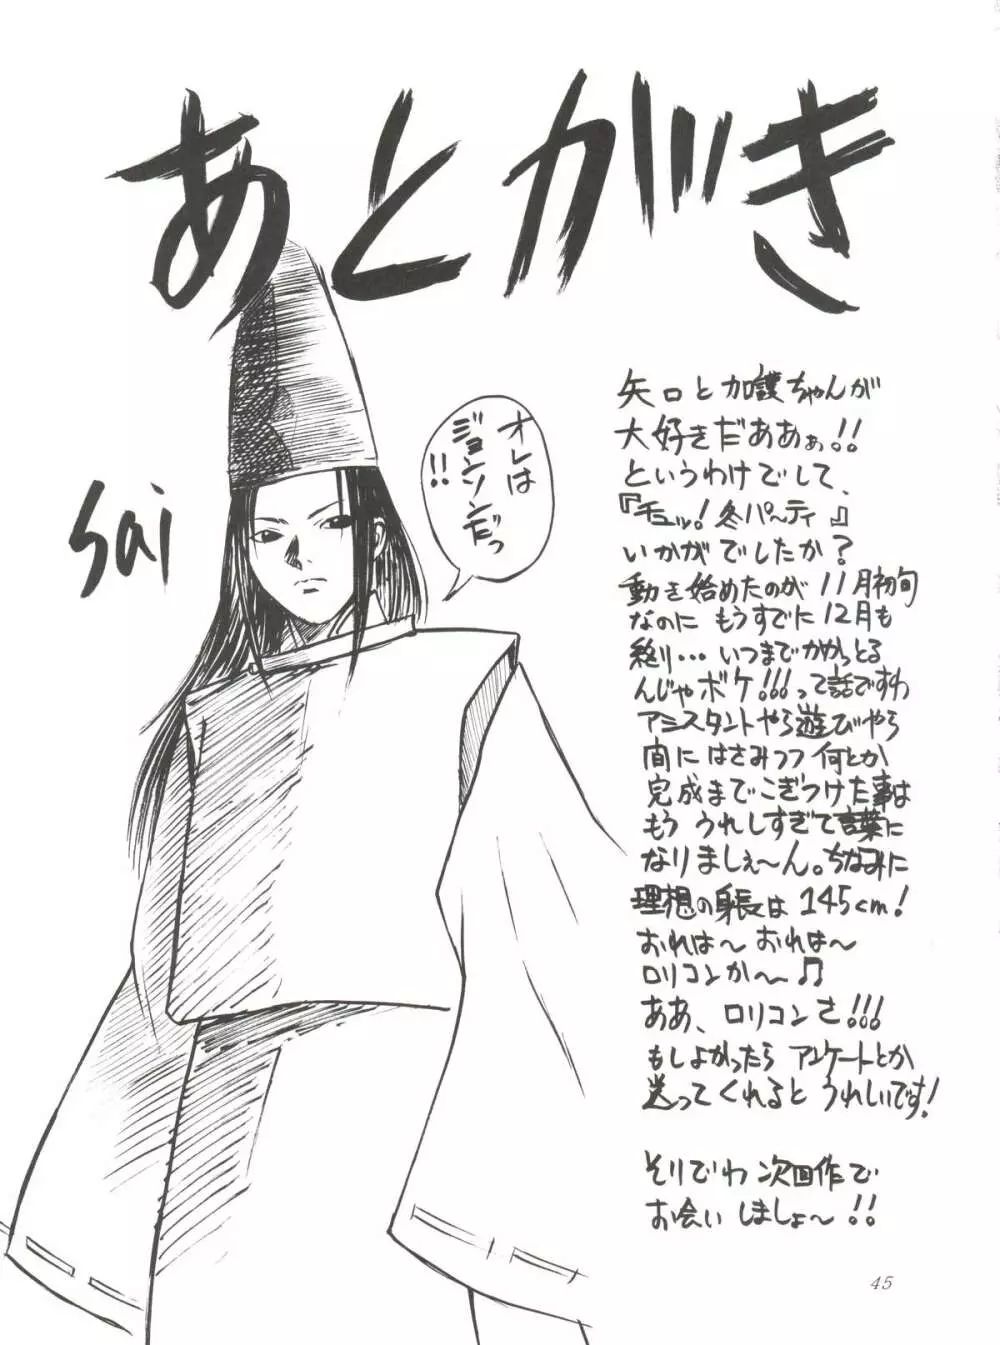 あとがき
sai
オレは
ジョンソンだっ
!!
矢口と加護ちゃんが
大好きだあああぁ!!
というわけでして、
『チュッ!冬パ〜ティ』
いかがでしたか?
動き始めたのが11月初旬
なのに もうすでに12月も
終り…いつまでかかっとる
んじゃボケ!!!って話ですわ
アシスタントやら遊びやら
間にはさみつつ何とか
完成までこぎつけた事は
もう うれしすぎて言葉に
なりましぇ〜ん。ちなみに
理想の身長は145cm!
おれは〜 おれは〜
ロリコンか〜♫
ああ、ロリコンさ!!!
もしよかったら アンケートとか
送ってくれると うれしいです!
そりでわ 次回作で
お会いしましょ〜!!
45